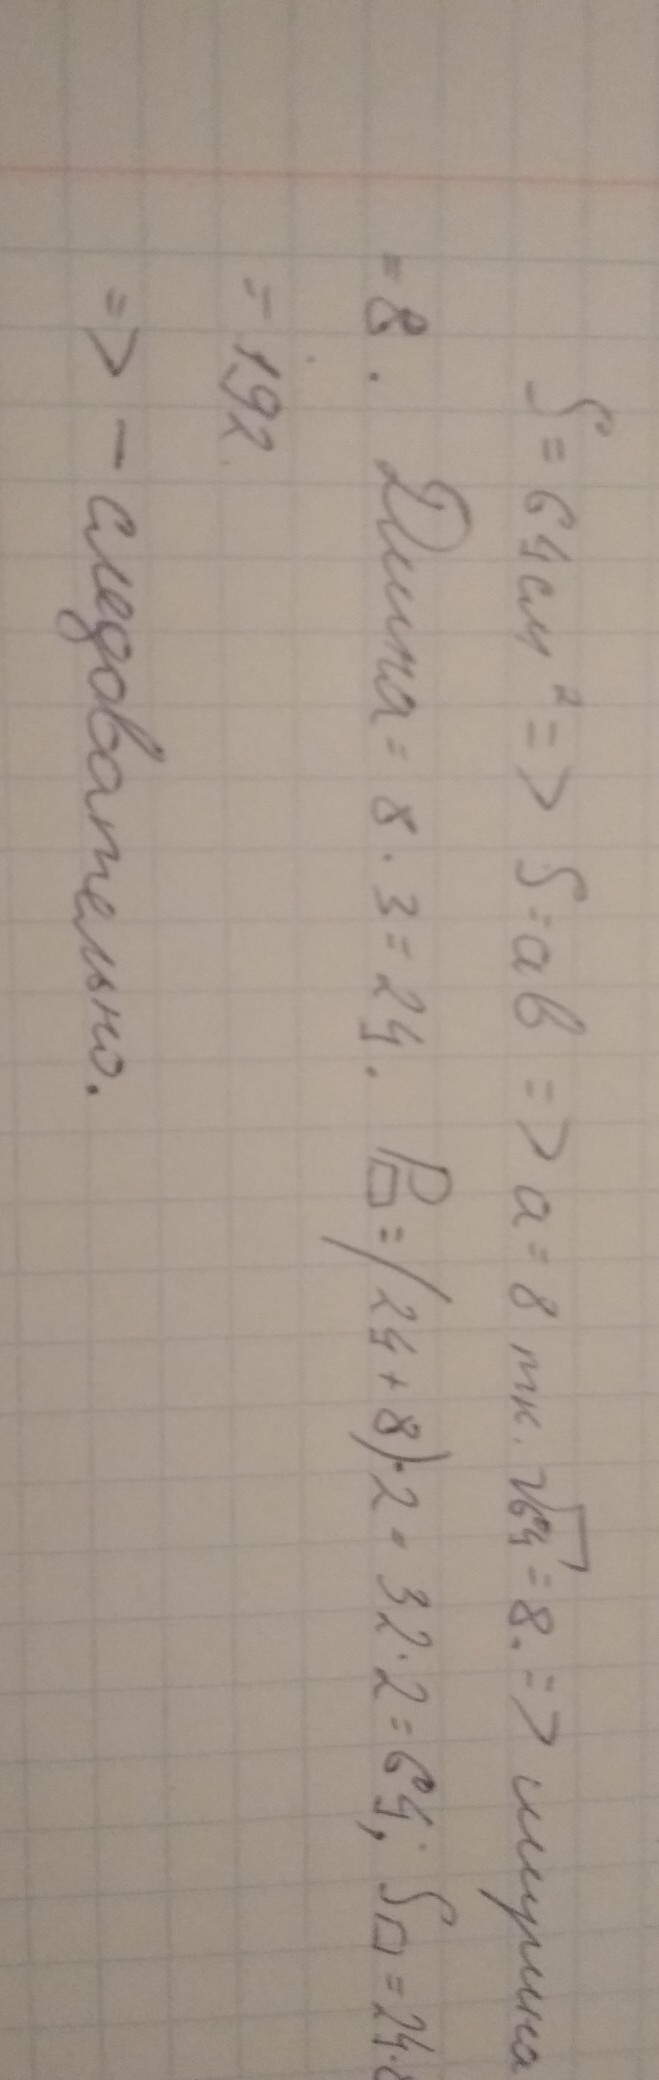 S = 64 см² => S = ab => a = 8 т.к. √64 = 8. => ширина
= 8. Длина = 8 · 3 = 24. P▭ = (24 + 8) · 2 = 32 · 2 = 64; S▭ = 24 · 8
= 192
=> - следовательно.